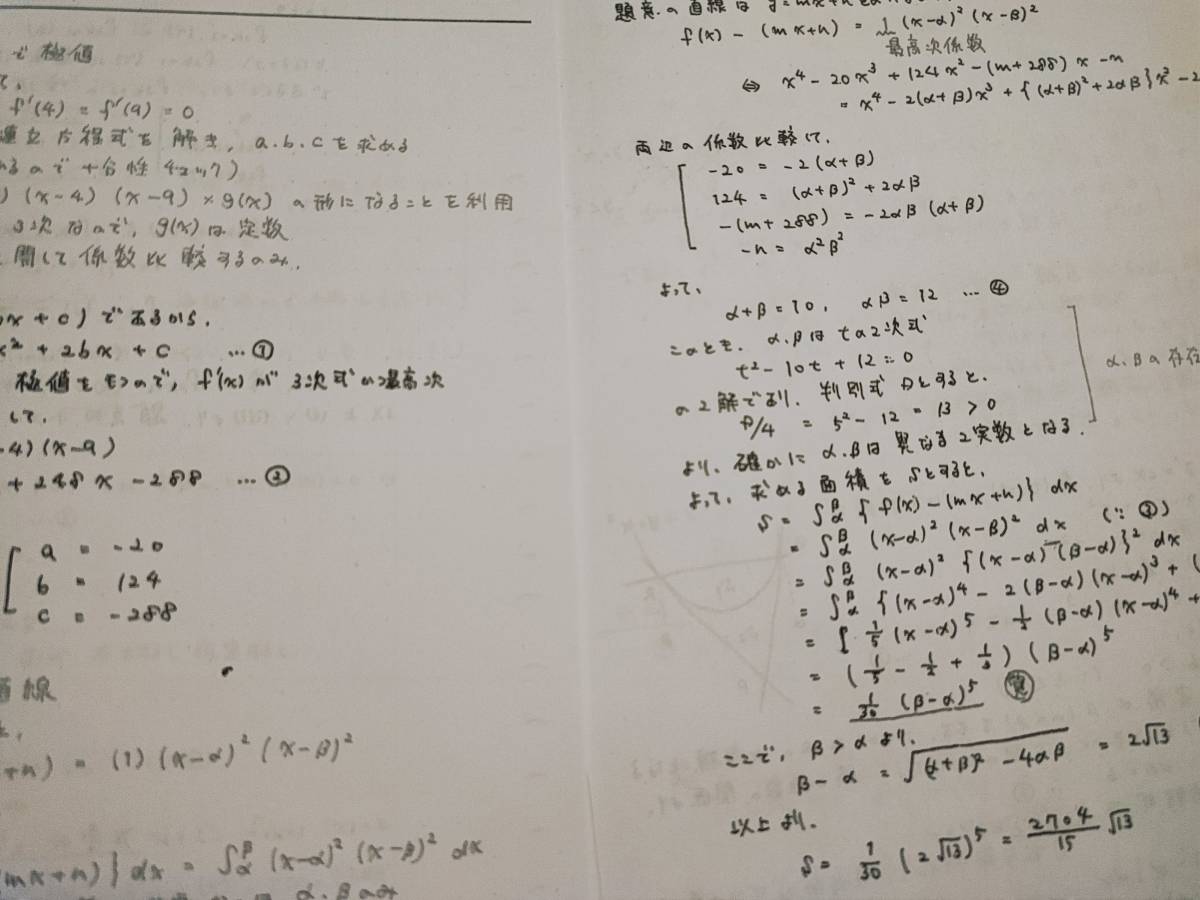 で極値
f'(4) = f'(9) = 0
連立方程式を解き, a.b.cを求める
るので十分性チェック)
(x-4)(x-9) × g(x) の形になることを利用
3次なので, g(x)は定数
関して係数比較するのみ.
x + c) であるから.
x² + 2bx + c …①
極値をもつので, f'(x)が3次式かつ最高次
して.
-4)(x-9)
+ 248x - 288 …②
a = -20
b = 124
c = -288
直線
+n) = (1)(x-α)²(x-β)²
(mx+n)} dx = ∫αβ (x-α)²(x-β)² dx
α.βのみ
題意の直線は y=mx+n
f(x) - (mx+n) = 1 (x-α)²(x-β)²
最高次係数
⇔ x⁴ - 20x³ + 124x² - (m+288)x - n
= x⁴ - 2(α+β)x³ + {(α+β)² + 2αβ}x² - 2
両辺の係数比較して.
-20 = -2(α+β)
124 = (α+β)² + 2αβ
-(m+288) = -2αβ(α+β)
-n = α²β²
よって,
α+β = 10, αβ = 12 …④
このとき. α.βはtの2次式
t² - 10t + 12 = 0
の2解であり. 判別式Dとすると.
D/4 = 5² - 12 = 13 > 0
α.βの存在
より, 確かにα.βは異なる2実数となる.
よって, 求める面積をSとすると,
S = ∫αβ {f(x) - (mx+n)} dx
= ∫αβ (x-α)²(x-β)² dx (∵③)
= ∫αβ (x-α)² {(x-α) - (β-α)}² dx
= ∫αβ {(x-α)⁴ - 2(β-α)(x-α)³ + (
= [1/5 (x-α)⁵ - 1/2 (β-α)(x-α)⁴ +
= (1/5 - 1/2 + 1/3)(β-α)⁵
= 1/30 (β-α)⁵
ここで, β > α より.
β-α = √(α+β)² - 4αβ = 2√13
以上より.
S = 1/30 (2√13)⁵ = 2704/15 √13